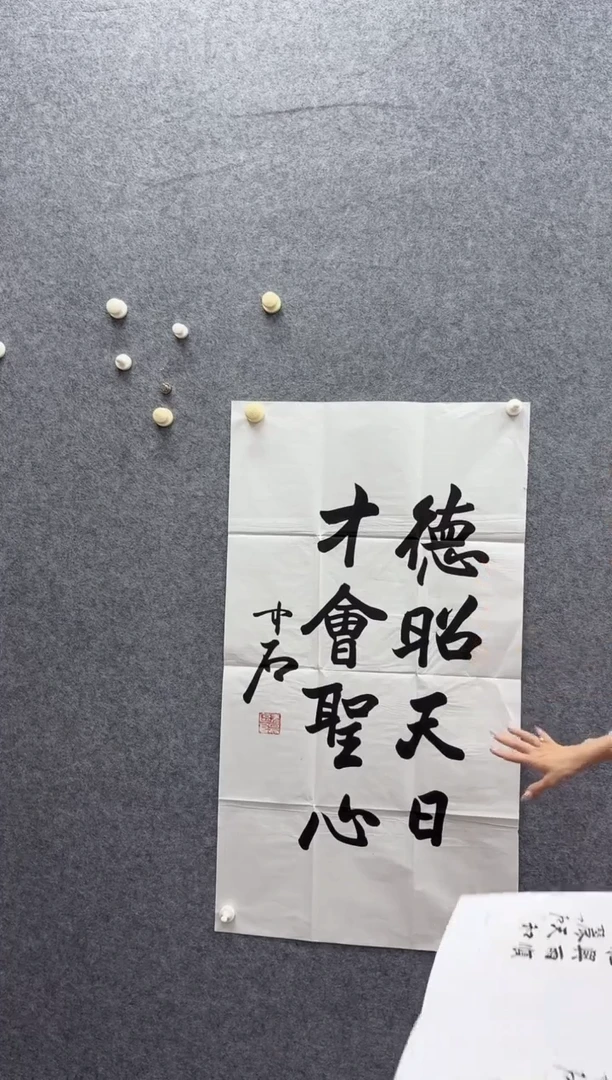 德昭天日
才會聖心
中石